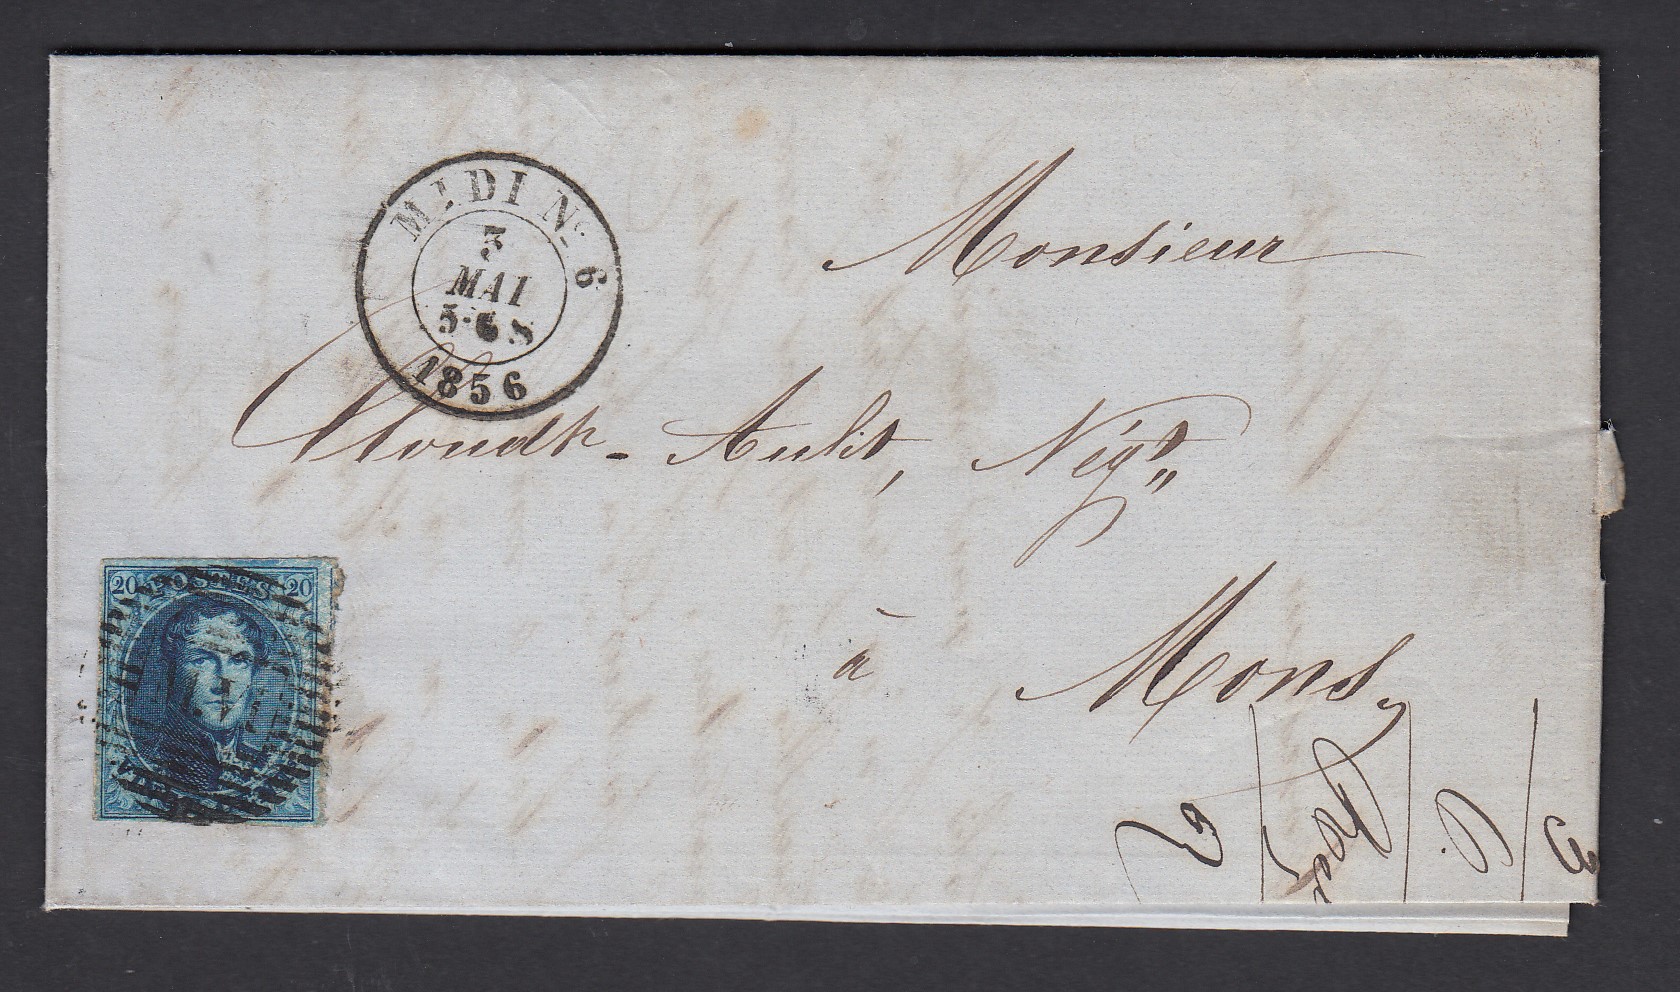 MIDI Nº 6
3
MAI
5-6 S
1856
Monsieur
Aulit, Négt
à Mons,
20 POSTES 20